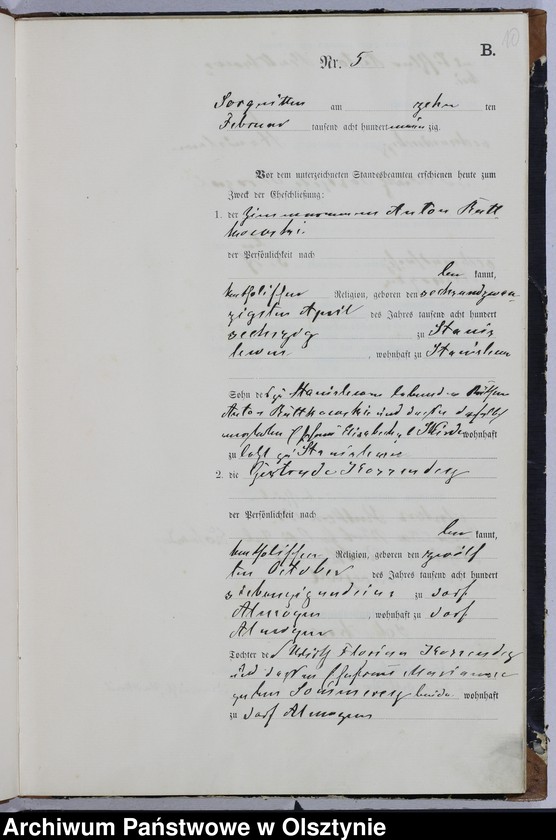 B.
10
Nr. 5
Sorquitten am zehn ten
Februar tausend acht hundert neun zig.
Vor dem unterzeichneten Standesbeamten erschienen heute zum
Zweck der Eheschließung:
1. der Zimmermann Anton Rutt
kowski
der Persönlichkeit nach
kannt,
katholischer Religion, geboren den sechsundzwan
zigsten April des Jahres tausend acht hundert
sechszig zu Stanis
lewo, wohnhaft zu Stanislewo
Sohn des zu Stanislewo
Anton Ruttkowski und dessen daselbst
Elisabeth wohnhaft
zu Stanislewo
2. die Gertrude
der Persönlichkeit nach
kannt,
katholischer Religion, geboren den zwölf
ten October des Jahres tausend acht hundert
siebenzigundeins zu Dorf
Almoyen, wohnhaft zu Dorf
Almoyen
Tochter des Florian
und dessen Ehefrau Marianne
geboren beide wohnhaft
zu Dorf Almoyen
Archiwum Państwowe w Olsztynie